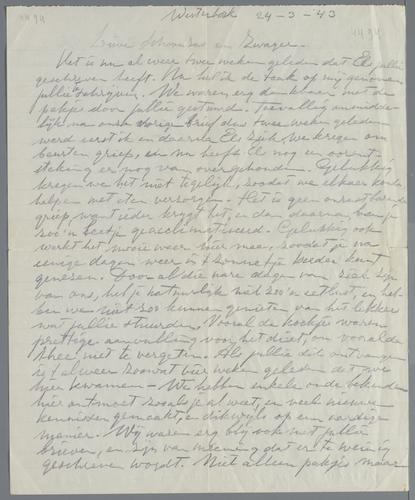 4494
Westerbork 24-3-43
4494
Lieve Schoonzus en Zwager.
Het is nu al weer twee weken geleden dat Els jullie
geschreven heeft. Nu heb ik de taak op mij genomen
jullie te schrijven. We waren erg dankbaar met de
pakjes door jullie gestuurd. Toevallig onmidde-
lijk na onze vorige brief dus twee weken geleden
werd eerst ik en daarna Els ziek, we kregen om
beurten griep, en nu heeft Els nog een ooront-
steking er nog van overgehouden. Gelukkig
kregen we het niet tegelijk, zoodat we elkaar konden
helpen met eten verzorgen. Het is geen
griep, want ieder krijgt het, en dan daarna ben je
zoo'n beetje geacclimatiseerd. Gelukkig ook
werkt het mooie weer hier mee, zoodat je na
eenige dagen weer in 't zonnetje verder kunt
genezen. Door al die nare dagen van ziek zijn
van ons, heb je natuurlijk niet zoo'n eetlust, en heb-
ben we niet zoo kunnen genieten van het lekkers
wat jullie stuurden. Vooral de koekjes waren
prettige aanvulling voor het dieet, en vooral de
thee niet te vergeten. Als jullie dit ontvangen
is 't al weer zoowat vier weken geleden dat we
hier kwamen - We hebben enkele oude bekenden
hier ontmoet zooals je al weet, en veel nieuwe
kennissen gemaakt, en dikwijls op een aardige
manier. Wij waren erg blij ook met jullie
brieven, en zijn van meening dat er te weinig
geschreven wordt. Niet alleen pakjes maar